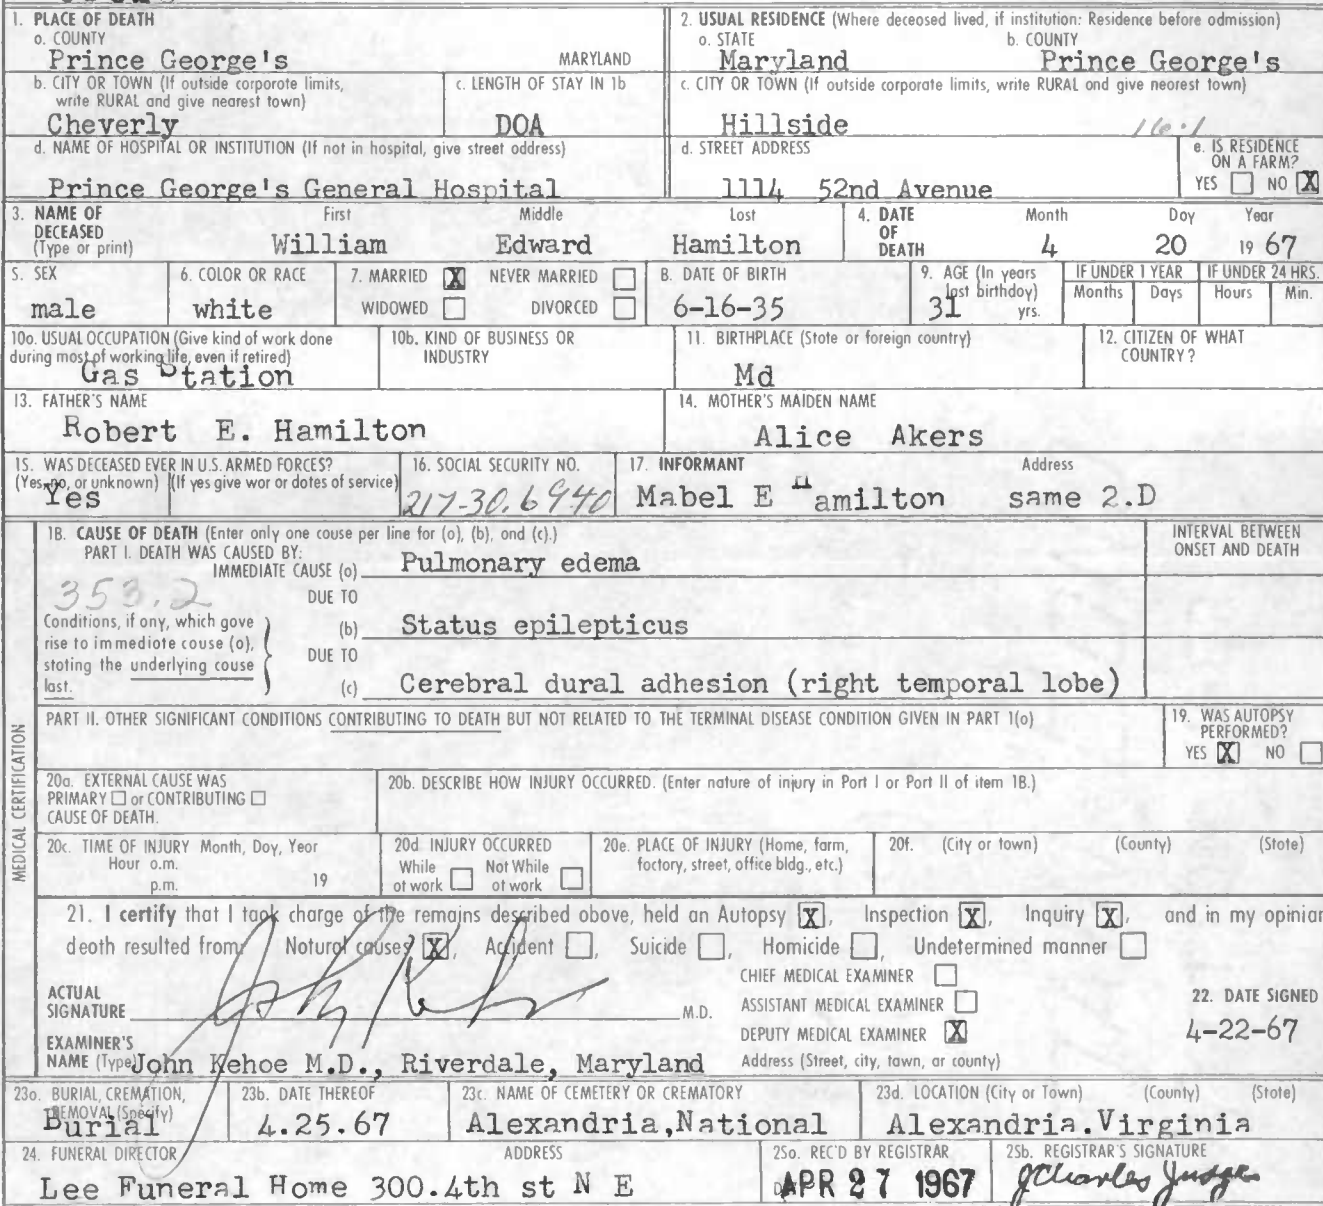 1. PLACE OF DEATH
a. COUNTY
Prince George's MARYLAND
2. USUAL RESIDENCE (Where deceased lived, if institution: Residence before admission)
a. STATE b. COUNTY
Maryland Prince George's
b. CITY OR TOWN (If outside corporate limits,
write RURAL and give nearest town)
Cheverly
c. LENGTH OF STAY IN 1b
DOA
c. CITY OR TOWN (If outside corporate limits, write RURAL and give nearest town)
Hillside 16.1
d. NAME OF HOSPITAL OR INSTITUTION (If not in hospital, give street address)
Prince George's General Hospital
d. STREET ADDRESS
1114 52nd Avenue
e. IS RESIDENCE
ON A FARM?
YES NO X
3. NAME OF
DECEASED
(Type or print)
First Middle Last
William Edward Hamilton
4. DATE
OF
DEATH
Month Day Year
4 20 19 67
5. SEX
male
6. COLOR OR RACE
white
7. MARRIED X NEVER MARRIED
WIDOWED DIVORCED
8. DATE OF BIRTH
6-16-35
9. AGE (In years
last birthday)
31 yrs.
IF UNDER 1 YEAR
Months Days
IF UNDER 24 HRS.
Hours Min.
10a. USUAL OCCUPATION (Give kind of work done
during most of working life, even if retired)
Gas Station
10b. KIND OF BUSINESS OR
INDUSTRY
11. BIRTHPLACE (State or foreign country)
Md
12. CITIZEN OF WHAT
COUNTRY?
13. FATHER'S NAME
Robert E. Hamilton
14. MOTHER'S MAIDEN NAME
Alice Akers
15. WAS DECEASED EVER IN U.S. ARMED FORCES?
(Yes, no, or unknown) (If yes give war or dates of service)
Yes
16. SOCIAL SECURITY NO.
217-30.6940
17. INFORMANT Address
Mabel E Hamilton same 2.D
MEDICAL CERTIFICATION
18. CAUSE OF DEATH (Enter only one cause per line for (a), (b), and (c).)
PART I. DEATH WAS CAUSED BY:
IMMEDIATE CAUSE (a) Pulmonary edema
INTERVAL BETWEEN
ONSET AND DEATH
353.2
DUE TO
Conditions, if any, which gave
rise to immediate cause (a),
stating the underlying cause
last.
(b) Status epilepticus
DUE TO
(c) Cerebral dural adhesion (right temporal lobe)
PART II. OTHER SIGNIFICANT CONDITIONS CONTRIBUTING TO DEATH BUT NOT RELATED TO THE TERMINAL DISEASE CONDITION GIVEN IN PART 1(a)
19. WAS AUTOPSY
PERFORMED?
YES X NO
20a. EXTERNAL CAUSE WAS
PRIMARY or CONTRIBUTING
CAUSE OF DEATH.
20b. DESCRIBE HOW INJURY OCCURRED. (Enter nature of injury in Part I or Part II of item 18.)
20c. TIME OF INJURY Month, Day, Year
Hour a.m.
p.m. 19
20d INJURY OCCURRED
While Not While
at work at work
20e. PLACE OF INJURY (Home, farm,
factory, street, office bldg., etc.)
20f. (City or town) (County) (State)
21. I certify that I took charge of the remains described above, held an Autopsy X, Inspection X, Inquiry X, and in my opinion
death resulted from: Natural causes X, Accident , Suicide , Homicide , Undetermined manner
CHIEF MEDICAL EXAMINER
ACTUAL
SIGNATURE M.D.
ASSISTANT MEDICAL EXAMINER
DEPUTY MEDICAL EXAMINER X
22. DATE SIGNED
4-22-67
EXAMINER'S
NAME (Type) John Kehoe M.D., Riverdale, Maryland
Address (Street, city, town, or county)
23a. BURIAL, CREMATION,
REMOVAL (Specify)
Burial
23b. DATE THEREOF
4.25.67
23c. NAME OF CEMETERY OR CREMATORY
Alexandria,National
23d. LOCATION (City or Town) (County) (State)
Alexandria.Virginia
24. FUNERAL DIRECTOR ADDRESS
Lee Funeral Home 300.4th st N E
25a. REC'D BY REGISTRAR
APR 27 1967
25b. REGISTRAR'S SIGNATURE
J Charles Judge